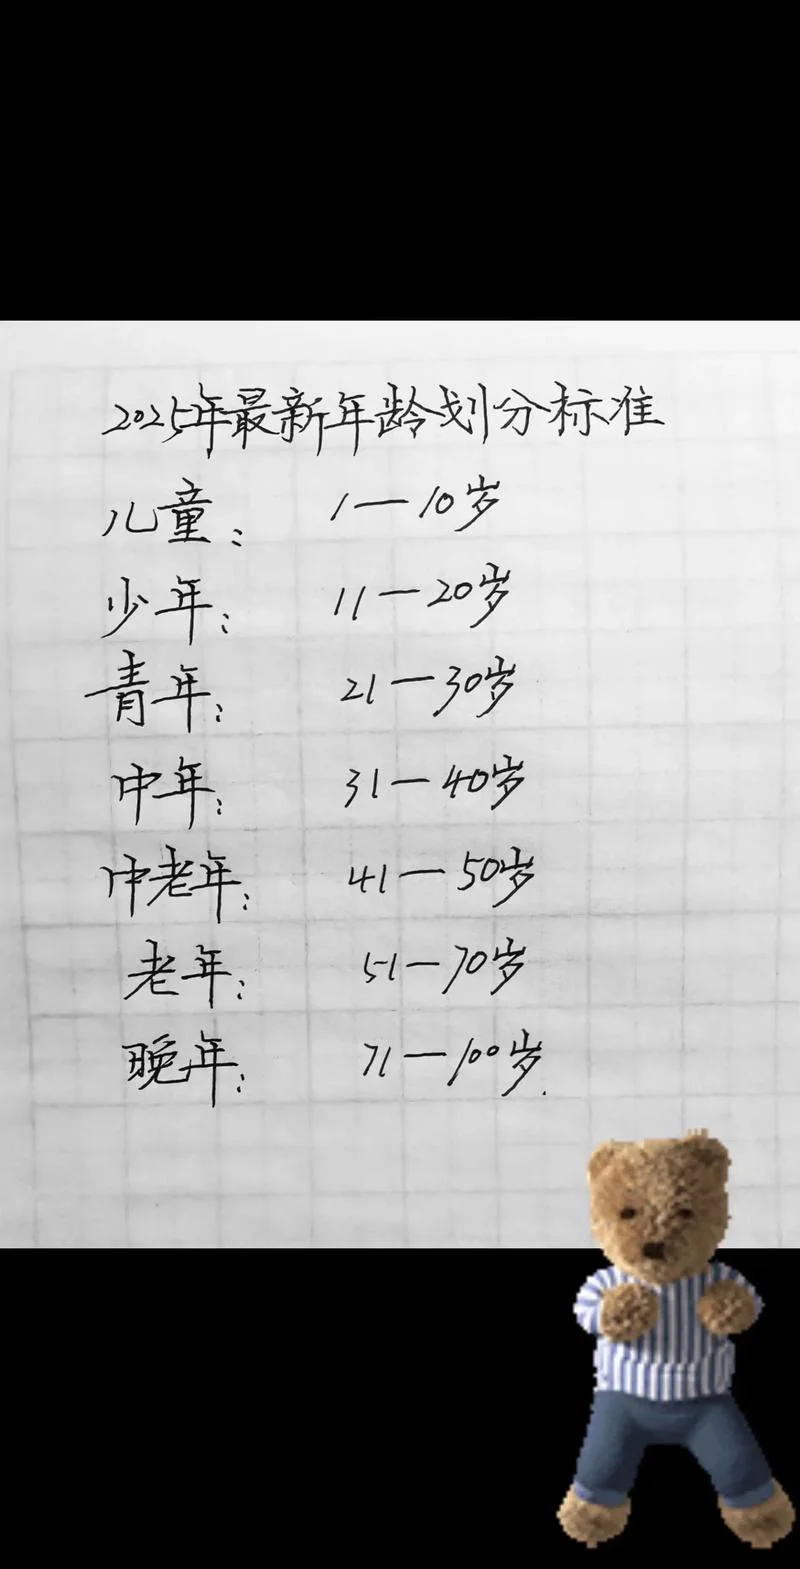 2025年最新年龄划分标准
儿童: 1—10岁
少年: 11—20岁
青年: 21—30岁
中年: 31—40岁
中老年: 41—50岁
老年: 51—70岁
晚年: 71—100岁.